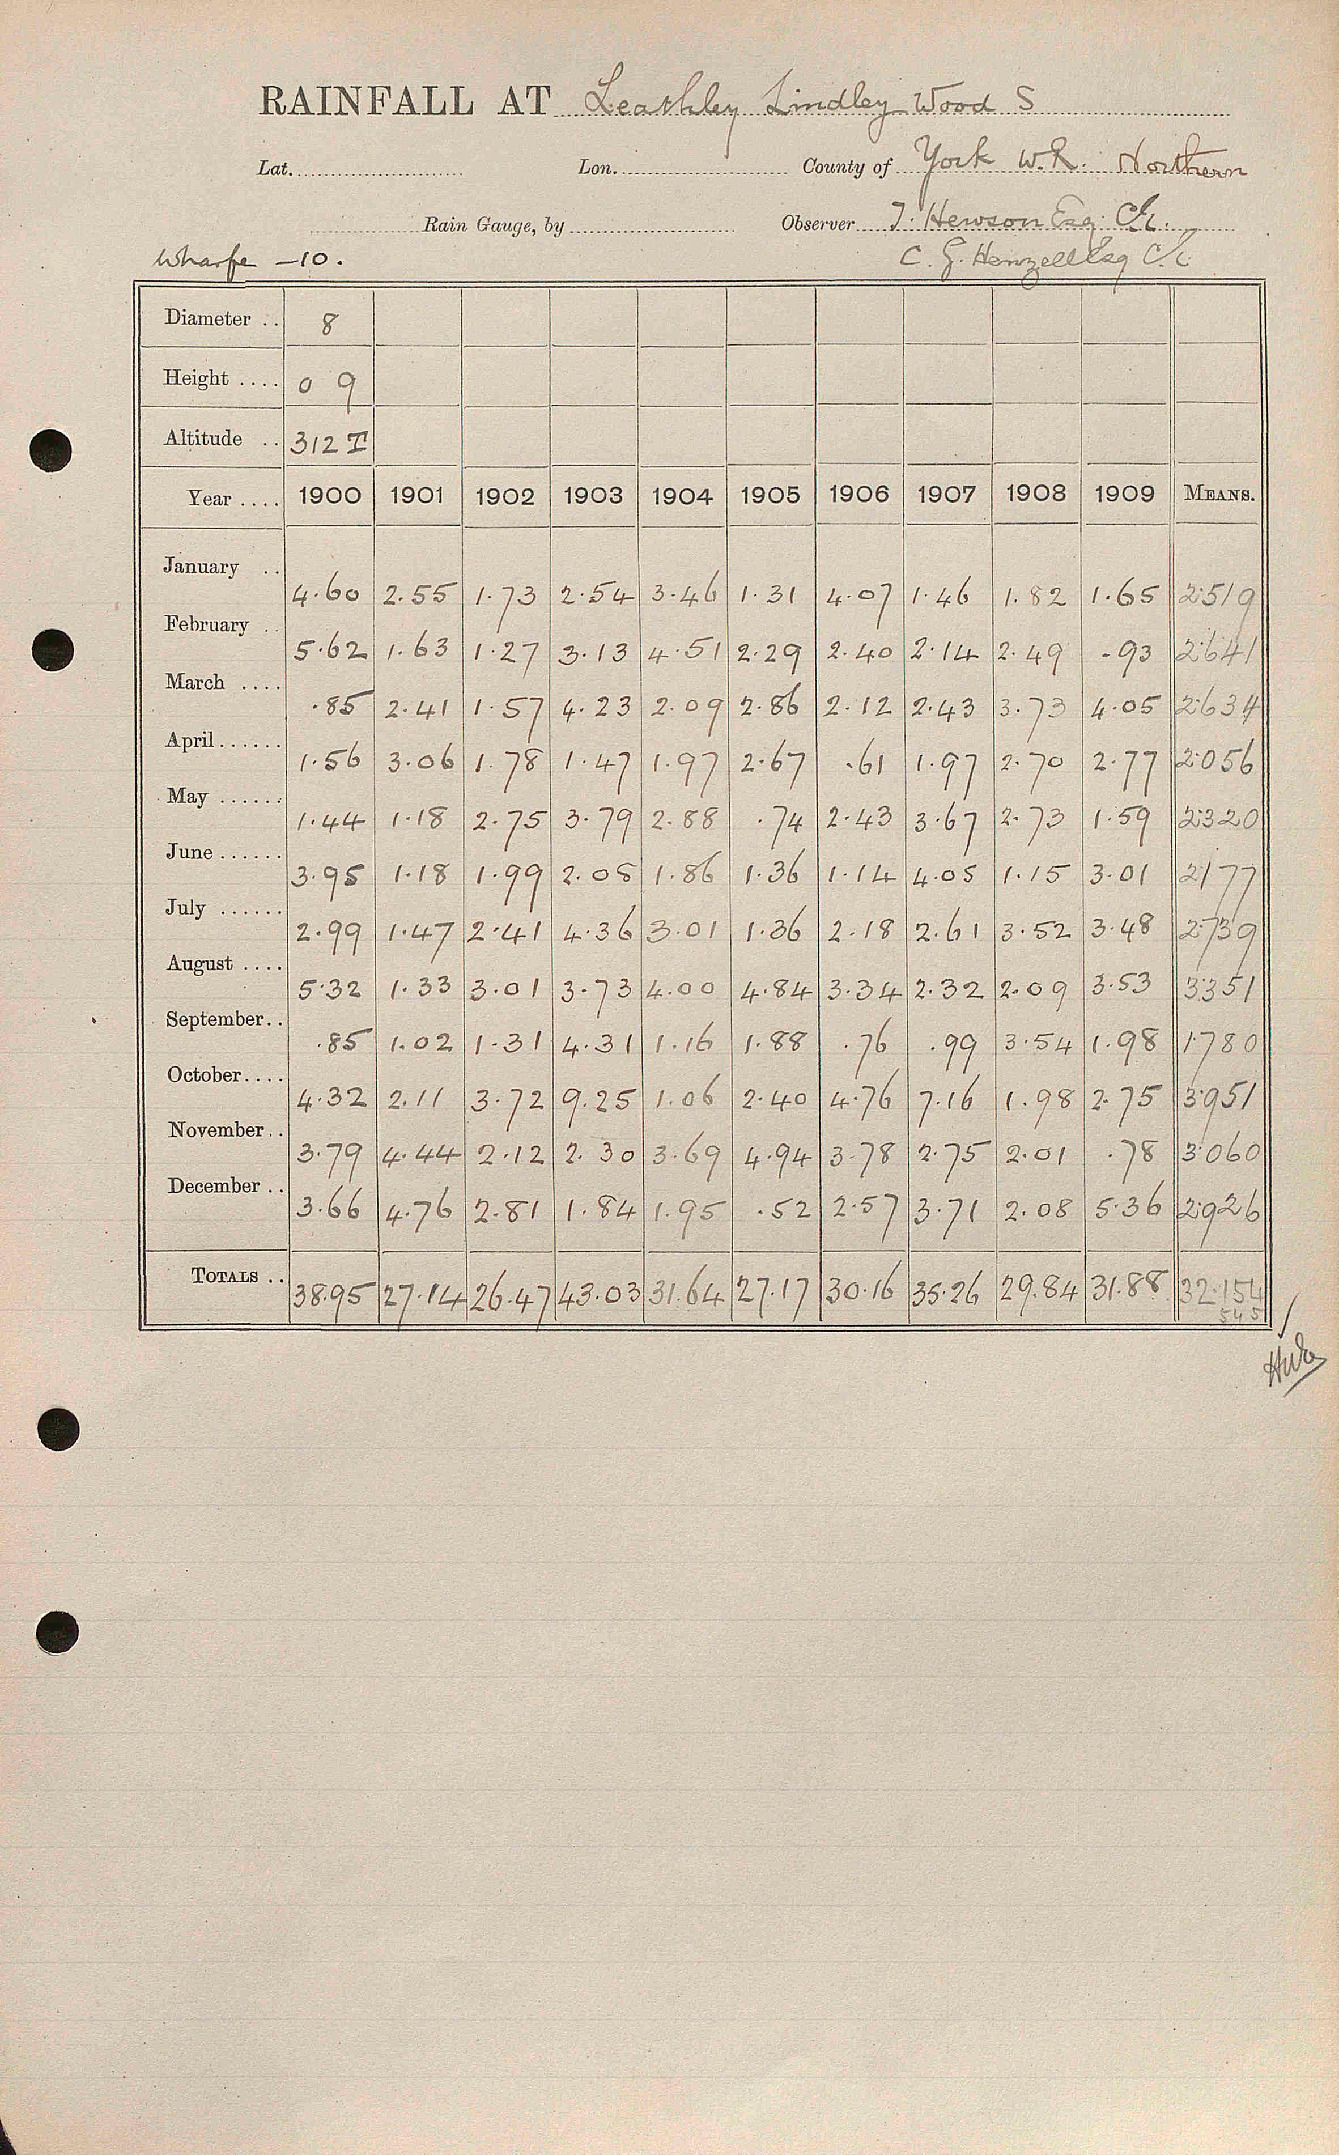 RAINFALL AT Leathley Lindley Wood S
Lat. Lon. County of York W.R. Northern
Rain Gauge, by Observer T. Hewson Esq C.E.
Wharfe – 10. C. G. Henzell Esq C.E.
Diameter .. 8
Height .... 0 9
Altitude .. 312 T
Year .... 1900 1901 1902 1903 1904 1905 1906 1907 1908 1909 MEANS.
January .. 4.60 2.55 1.73 2.54 3.46 1.31 4.07 1.46 1.82 1.65 2.519
February .. 5.62 1.63 1.27 3.13 4.51 2.29 2.40 2.14 2.49 .93 2.641
March .... .85 2.41 1.57 4.23 2.09 2.86 2.12 2.43 3.73 4.05 2.634
April...... 1.56 3.06 1.78 1.47 1.97 2.67 .61 1.97 2.70 2.77 2.056
May ...... 1.44 1.18 2.75 3.79 2.88 .74 2.43 3.67 2.73 1.59 2.320
June ...... 3.95 1.18 1.99 2.08 1.86 1.36 1.14 4.05 1.15 3.01 2.177
July ...... 2.99 1.47 2.41 4.36 3.01 1.36 2.18 2.61 3.52 3.48 2.739
August .... 5.32 1.33 3.01 3.73 4.00 4.84 3.34 2.32 2.09 3.53 3.351
September.. .85 1.02 1.31 4.31 1.16 1.88 .76 .99 3.54 1.98 1.780
October.... 4.32 2.11 3.72 9.25 1.06 2.40 4.76 7.16 1.98 2.75 3.951
November.. 3.79 4.44 2.12 2.30 3.69 4.94 3.78 2.75 2.01 .78 3.060
December .. 3.66 4.76 2.81 1.84 1.95 .52 2.57 3.71 2.08 5.36 2.926
TOTALS .. 38.95 27.14 26.47 43.03 31.64 27.17 30.16 35.26 29.84 31.88 32.154
545